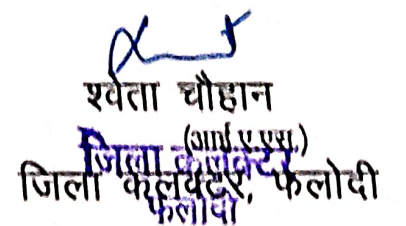 श्वेता चौहान
(आई.ए.एस.)
जिला कलक्टर
जिला कलक्टर, फलोदी
फलोदी